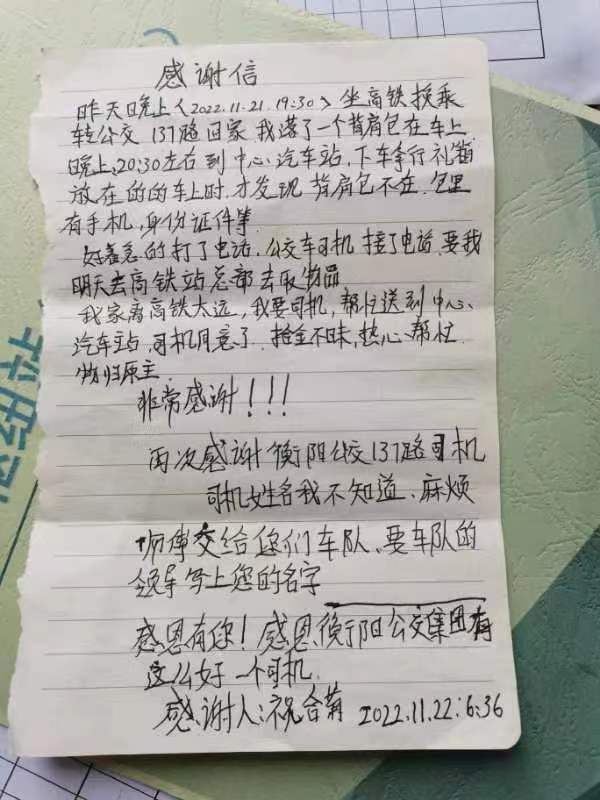 感谢信
昨天晚上(2022.11.21.19:30)坐高铁换乘
转公交137路回家.我落了一个背肩包在车上
晚上20:30左右到中心汽车站,下车拿行礼
放在的的车上时.才发现背肩包不在.包里
有手机,身份证件等.
好着急的打了电话.公交车司机接了电话.要我
明天去高铁站总部去取物品
我家离高铁太远,我要司机,帮忙送到中心
汽车站,司机同意了.拾金不昧,热心帮忙.
物归原主.
非常感谢!!!
再次感谢衡阳公交137路司机
司机姓名我不知道、麻烦
师傅交给你们车队、要车队的
领导写上您的名字
感恩有你!感恩衡阳公交集团有
这么好一个司机.
感谢人:祝合 2022.11.22:6:36